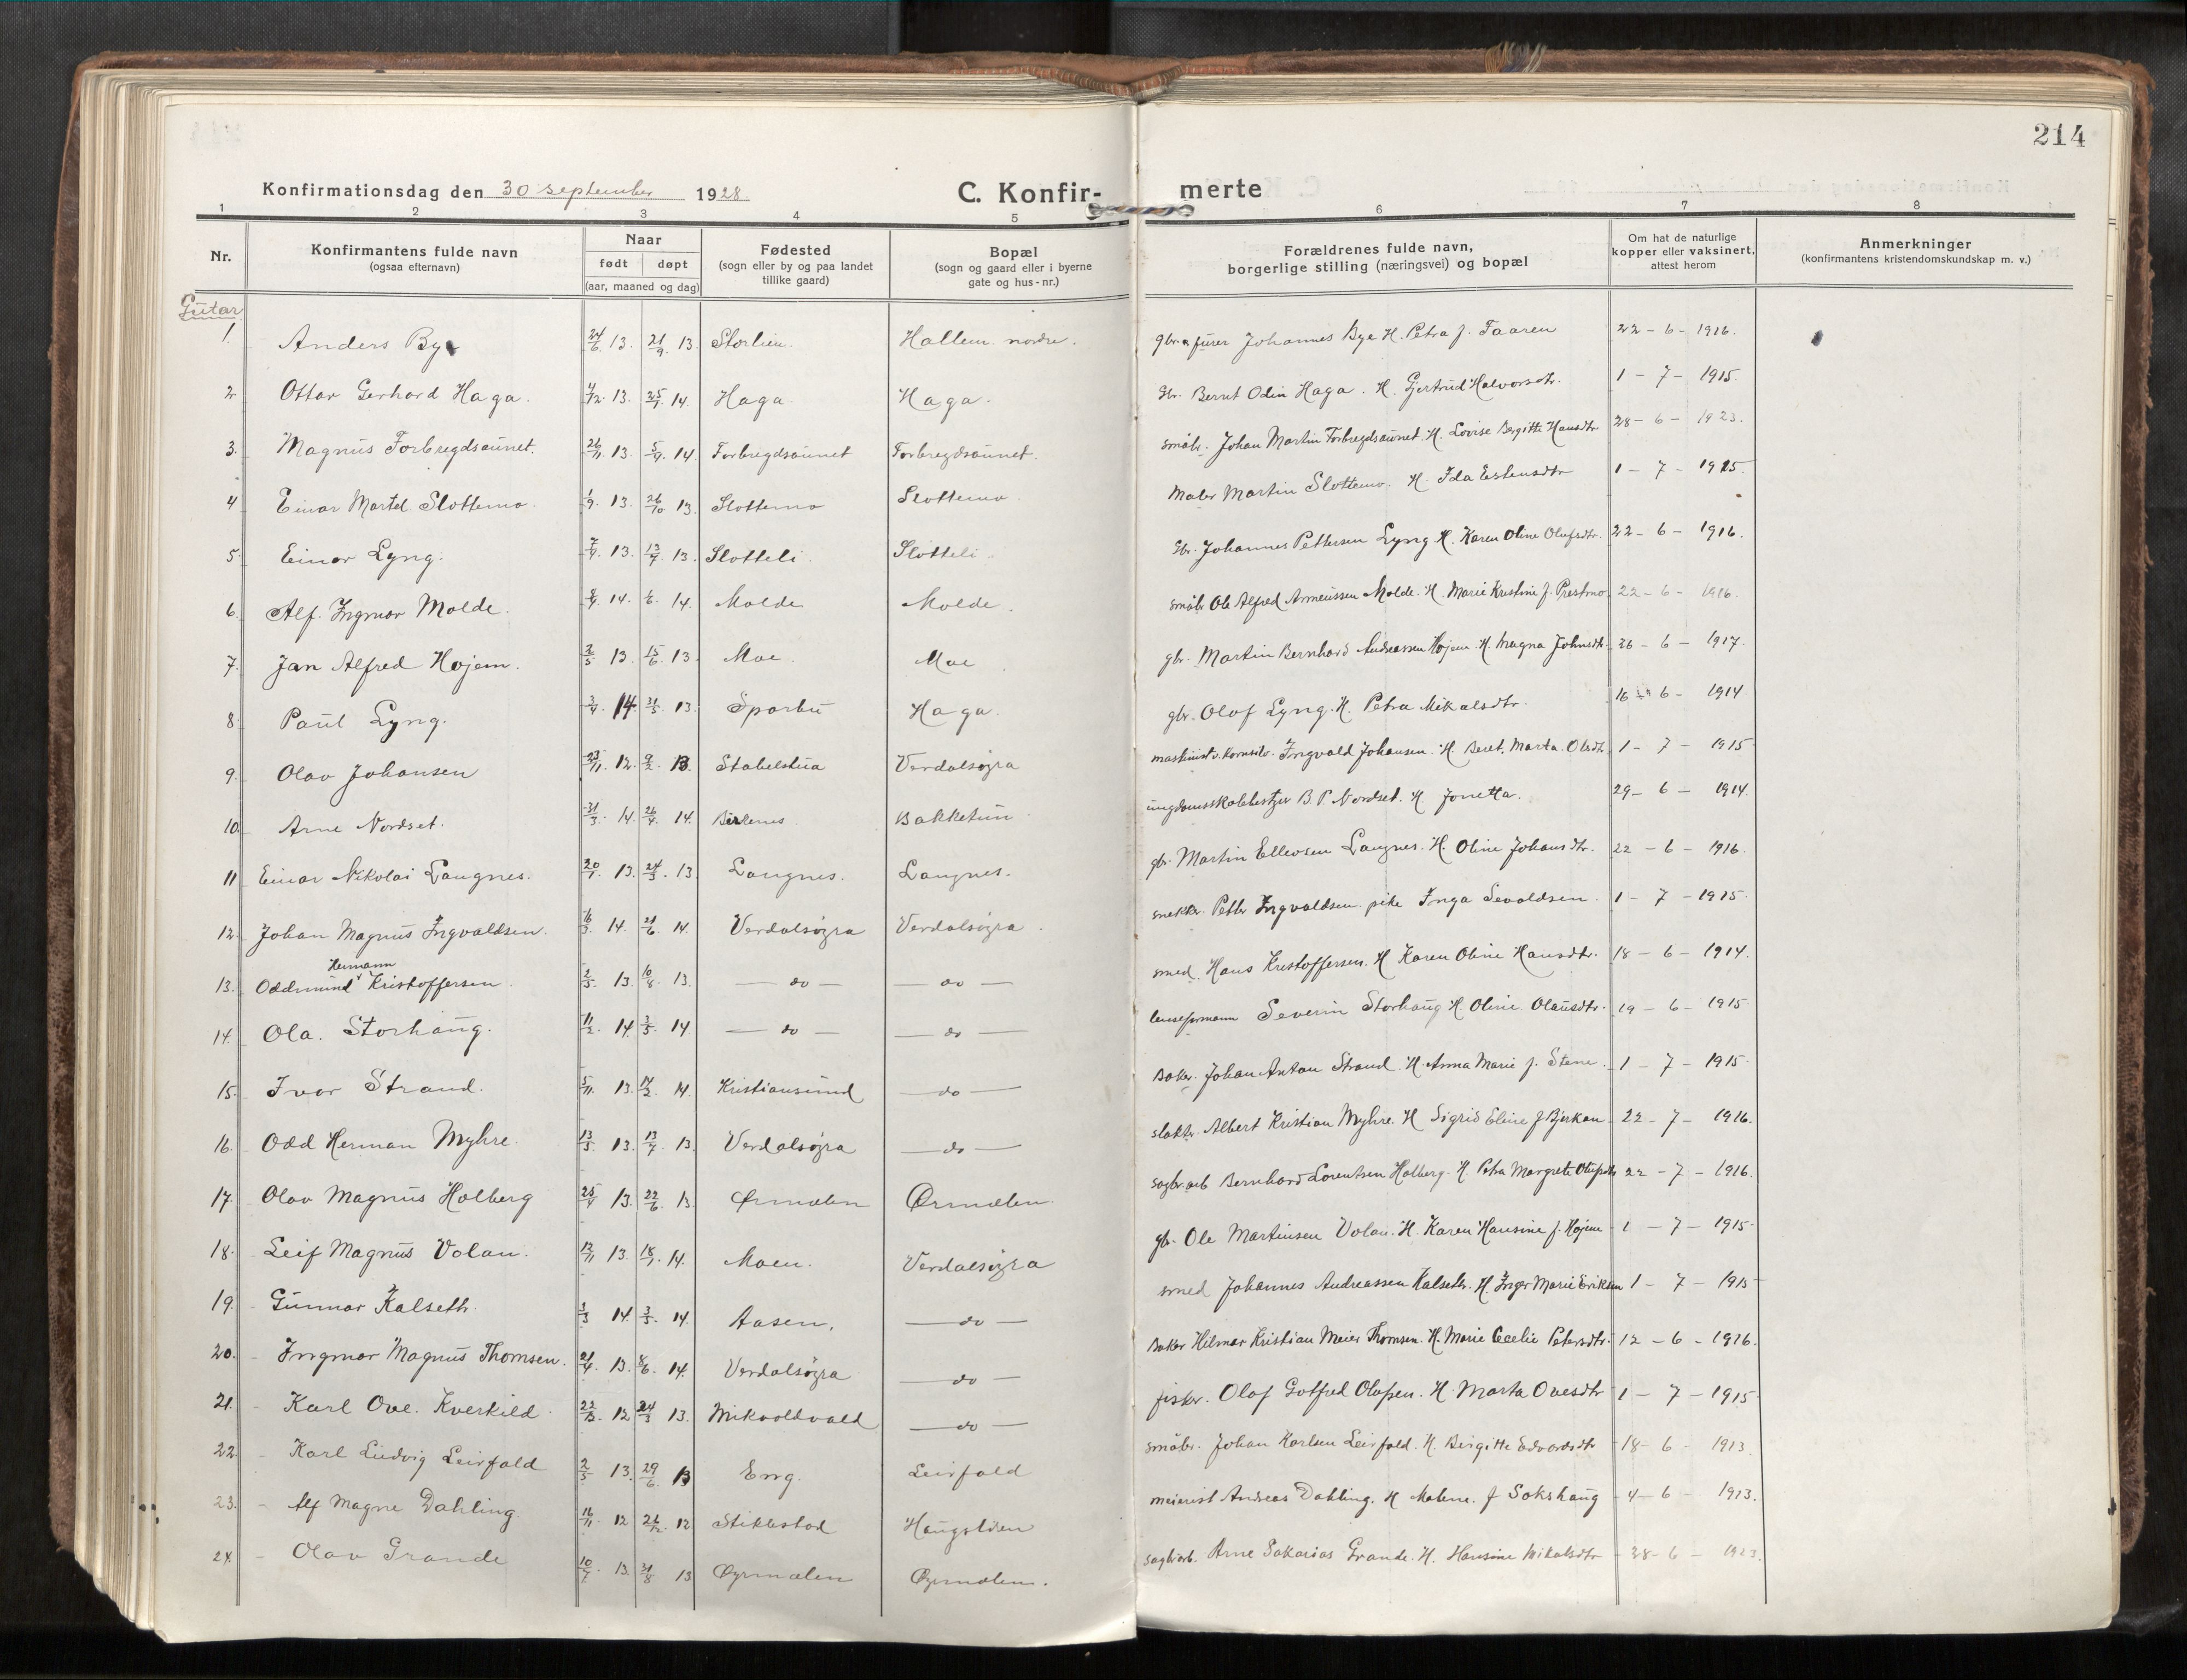 214
Konfirmationsdag den 30 september 1928 C. Konfir- merte
1 2 3 4 5 6 7 8
Nr.
Konfirmantens fulde navn
(ogsaa efternavn)
Naar
født døpt
(aar, maaned og dag)
Fødested
(sogn eller by og paa landet
tillike gaard)
Bopæl
(sogn og gaard eller i byerne
gate og hus-nr.)
Forældrenes fulde navn,
borgerlige stilling (næringsvei) og bopæl
Om hat de naturlige
kopper eller vaksinert,
attest herom
Anmerkninger
(konfirmantens kristendomskundskap m. v.)
Gutar
1. Anders Bye 24/6 13. 21/9 13. Storlien. Hallem nordre. gbr. & furer Johannes Bye H. Petra f. Faaren 22 - 6 - 1916.
2 Ottar Gerhard Haga. 4/12 13. 25/1 14. Haga Haga. Gbr. Bernt Odin Haga. H. Gjertrud Halvorsdtr. 1 - 7 - 1915.
3. Magnus Forbregdsaunet. 26/11 13. 5/9 14. Forbregdsaunet Forbregdsaunet. småbr. Johan Martin Forbregdsaunet. H. Lovise Bergitte Hansdtr 28 - 6 - 1923.
4 Einar Martel Slottemo. 1/9 13. 26/10 13. Slottemo Slottemo. Maler Martin Slottemo. H. Ida Estensdtr 1 - 7 - 1915.
5. Einar Lyng. 13. 13/7 13. Slotteli. Slotteli. Gbr. Johannes Pettersen Lyng. H. Karen Oline Olufsdtr. 22 - 6 - 1916.
6. Alf. Ingmar Molde. 14. 14. Molde Molde. småbr Ole Alfred Arneussen Molde. H. Marie Kristine f. Prestmo. 22 - 6 - 1916.
7. Jan Alfred Hojem. 3/5 13. 15/6 13. Moe. Moe gbr. Martin Bernhard Andreassen Hojem. H. Magna Johnsdtr. 26 - 6 - 1917.
8. Paul Lyng. 3/4. 14 31/5 13. Sparbu Haga. gbr. Olaf Lyng. H. Petra Mikalsdtr. 16 - 6 - 1914
9. Olav Johansen 23/11. 12. 9/2 13. Stabelstua Verdalsøyra maskinist v. kornsilo. Ingvald Johansen. H. Beret. Marta. Olsdtr. 1 - 7 - 1915
10. Arne Nordset. 31/3. 14. 26/4. 14. Birkenes Bakketun ungdomsskolebestyr B. P. Nordset. H. Jonetta. 29 - 6 - 1914.
11 Einar Nikolai Langnes. 20/1. 13. 24/3. 13. Langnes. Langnes. gbr. Martin Ellevsen Langnes. H. Oline Johansdtr. 22 - 6 - 1916.
12. Johan Magnus Ingvaldsen. 16/3. 14. 21/6 14. Verdalsøyra Verdalsøyra. snekker. Petter Ingvaldsen. pike Inga Sevaldsen. 1 - 7 - 1915.
13. Oddmund Hermann Kristoffersen. 2/5 13. 10/8. 13. — do — — do — smed. Hans Kristoffersen. H Karen Oline Hansdtr. 18 - 6 - 1914.
14. Ola. Storhaug. 11/2. 14. 3/5. 14. — do — — do — lenseformann Severin Storhaug H. Oline Olausdtr. 19 - 6 - 1915
15. Ivar Strand. 5/11. 13. 14/2. 14. Kristiansund — do — Baker. Johan Anton Strand. H. Anna Marie f. Stene. 1 - 7 - 1915.
16. Odd Herman Myhre. 13/5 13. 13/7 13. Verdalsøyra — do — slakter. Albert Kristian Myhre. H Sigrid Eline f Bjerkan 22 - 7 - 1916.
17. Olav Magnus Holberg 25/4 13. 22/6. 13. Ørmælen Ørmælen. sagbr. arb Bernhard Lorentsen Holberg. H Petra Margrete Olufsdtr 22 - 7 - 1916.
18. Leif Magnus Volan. 12/11 13. 18/1. 14. Moen. Verdalsøyra gbr. Ole Martinsen Volan. H. Karen Hansine f. Hojem 1 - 7 - 1915
19. Gunnar Kalseth. 1/3 14. 3/5. 14. Aasen. — do — smed Johannes Andreassen Kalseth. H. Inger Marie Eriksen 1 - 7 - 1915
20. Ingmar Magnus Thomsen. 21/4. 13. 8/6. 14. Verdalsøyra — do — Baker Hilmar Kristian Meier Thomsen. H. Marie Cecelie Petersdtr. 12 - 6 - 1916.
21. Karl Ove. Kverkild. 12 24/3 13. Mikvoldvald — do — fisker. Olaf Gotfred Olufsen. H. Marta Ovesdtr 1 - 7 - 1915
22. Karl Ludvig Leirfald 2/5 13. 29/6. 13 Eng. Leirfald småbr. Johan Karlsen Leirfald. H. Birgitte Edvardsdtr 18 - 6 - 1913.
23. Alf Magne Dahling. 16/11. 12 26/12. 12 Stiklestad Haugslien meierist Andreas Dahling. H Malene. f Sokshaug 4 - 6 - 1913.
24. Olav Grande 10/7. 13. 31/8 13 Øyrmælen Øyrmælen. sagbr.arb. Arne Sakarias Grande. H. Hansine Mikalsdtr 28 - 6 - 1923.